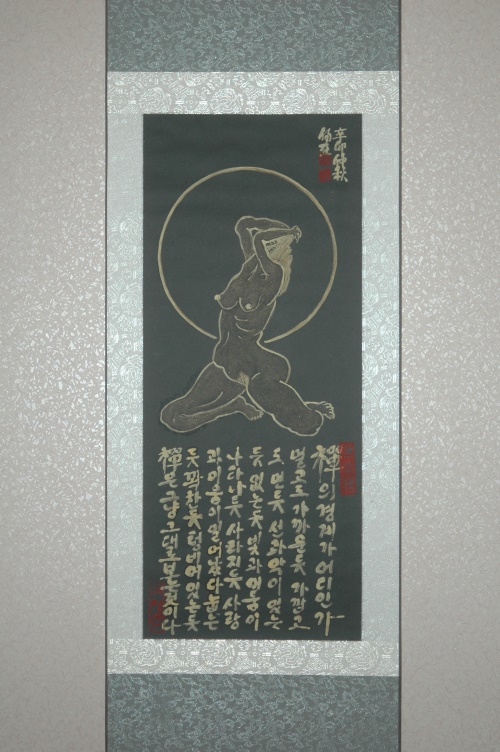 辛卯仲秋
禪의경계가어디인가
멀고도가까운듯가깝고
도먼듯선과악이있는
듯없는듯빛과어둠이
나타나듯사라진듯사랑
과미움이일어났다눕는
듯꽉찬듯텅비어있는듯
禪은그냥그대로보는것이다